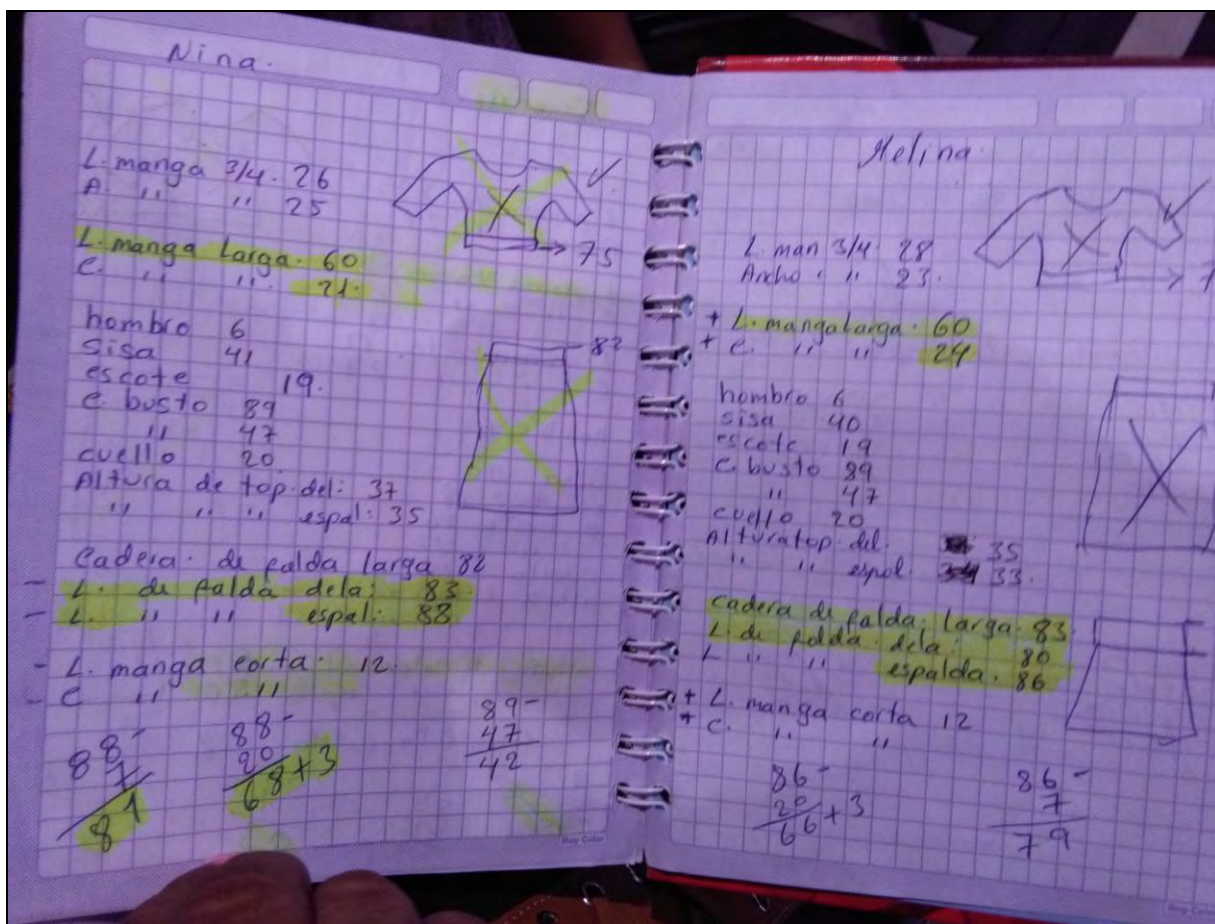 Nina.
L. manga 3/4. 26
A. '' '' 25
75
L. manga Larga. 60
C. '' ''. 21.
hombro 6
Sisa 41
escote 19.
C. busto 89
'' 47
cuello 20
Altura de top. del: 37
'' '' '' espal: 35
82
Cadera. de falda larga 82
- L. de falda dela: 83.
- L. '' '' espal: 88
- L. manga corta. 12.
- C '' ''
88-
7
81
88-
20
68+3
89-
47
42
Melina.
L. man 3/4 28
Ancho. '' 23.
7
+ L. manga Larga. 60
+ C. '' '' 24
hombro 6
sisa 40
escote 19
C. busto 89
'' 47
cuello 20
Altura top. del. 35
'' '' espal. 33.
Cadera de falda. larga. 83.
L. de falda. dela. 80
L '' '' espalda. 86
+ L. manga corta 12
+ C. '' ''
86-
20
66+3
86-
7
79